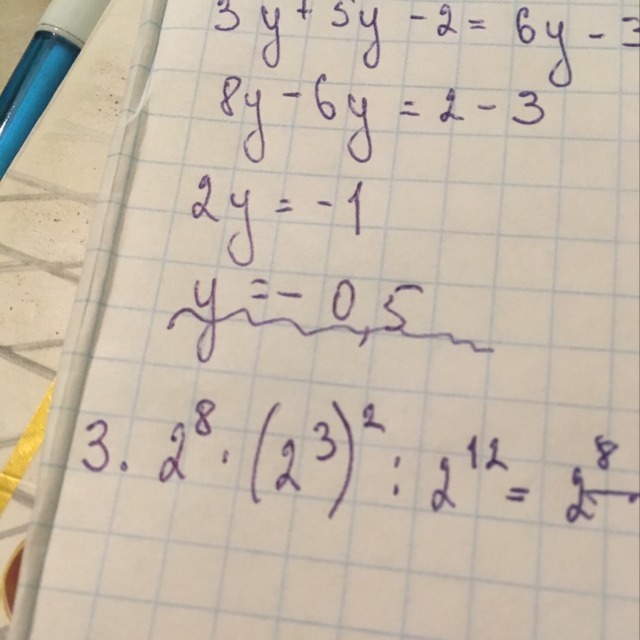 3y + 5y - 2 = 6y - 3
8y - 6y = 2 - 3
2y = -1
y = - 0,5
3. 2⁸ · (2³)² : 2¹² = 2⁸